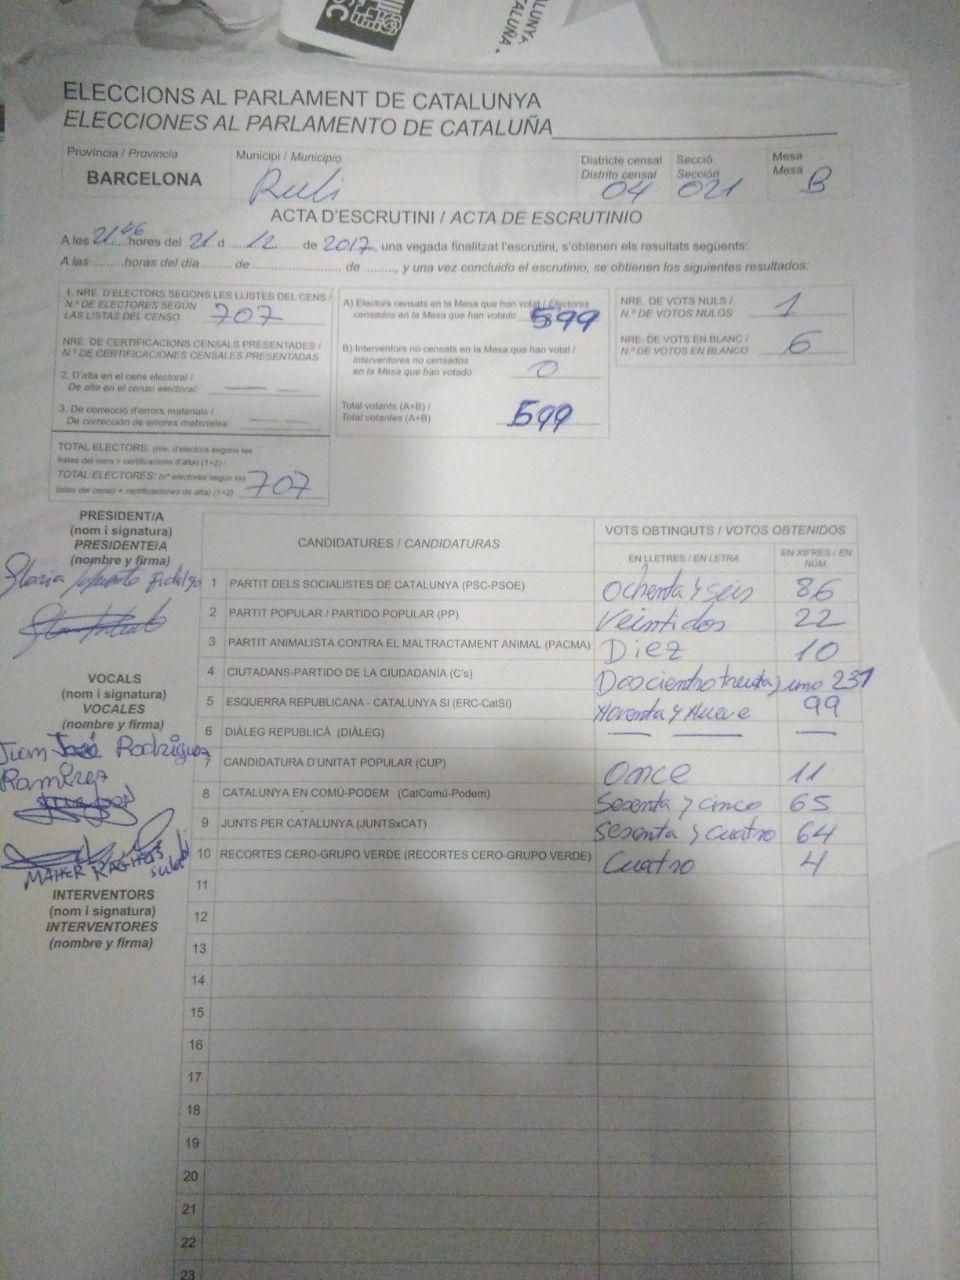 ELECCIONS AL PARLAMENT DE CATALUNYA
ELECCIONES AL PARLAMENTO DE CATALUÑA
Provincia / Provincia
BARCELONA
Municipi / Municipio
Rubí
Districte censal
Distrito censal
04
Secció
Sección
021
Mesa
Mesa
B
ACTA D'ESCRUTINI / ACTA DE ESCRUTINIO
A les 21 46 hores del 21 d 12 de 2017, una vegada finalitzat l'escrutini, s'obtenen els resultats següents:
A las ........horas del día ....... de ..................... de ........, y una vez concluido el escrutinio, se obtienen los siguientes resultados:
1. NRE. D'ELECTORS SEGONS LES LLISTES DEL CENS /
N.º DE ELECTORES SEGÚN
LAS LISTAS DEL CENSO
707
NRE. DE CERTIFICACIONS CENSALS PRESENTADES /
N.º DE CERTIFICACIONES CENSALES PRESENTADAS
2. D'alta en el cens electoral /
De alta en el censo electoral:
3. De correcció d'errors materials /
De corrección de errores materiales:
TOTAL ELECTORS: (nre. d'electors segons les
llistes del cens + certificacions d'alta) (1+2) /
TOTAL ELECTORES: (nº electores según las
listas del censo + certificaciones de alta) (1+2)
707
A) Electors censats en la Mesa que han votat / Electores
censados en la Mesa que han votado
599
B) Interventors no censats en la Mesa que han votat /
Interventores no censados
en la Mesa que han votado
0
Total votants (A+B) /
Total votantes (A+B)
599
NRE. DE VOTS NULS /
N.º DE VOTOS NULOS
1
NRE. DE VOTS EN BLANC /
N.º DE VOTOS EN BLANCO
6
PRESIDENT/A
(nom i signatura)
PRESIDENTE/A
(nombre y firma)
Fidalgo
VOCALS
(nom i signatura)
VOCALES
(nombre y firma)
Juan José Rodríguez
Ramírez
MAHER
INTERVENTORS
(nom i signatura)
INTERVENTORES
(nombre y firma)
CANDIDATURES / CANDIDATURAS
VOTS OBTINGUTS / VOTOS OBTENIDOS
EN LLETRES / EN LETRA
EN XIFRES / EN NÚM.
1 PARTIT DELS SOCIALISTES DE CATALUNYA (PSC-PSOE) Ochenta y seis 86
2 PARTIT POPULAR / PARTIDO POPULAR (PP) Veintidos 22
3 PARTIT ANIMALISTA CONTRA EL MALTRACTAMENT ANIMAL (PACMA) Diez 10
4 CIUTADANS-PARTIDO DE LA CIUDADANÍA (C's) Doscientotreinta y uno 231
5 ESQUERRA REPUBLICANA - CATALUNYA SI (ERC-CatSí) Noventa y Nueve 99
6 DIÀLEG REPUBLICÀ (DIÀLEG)
7 CANDIDATURA D'UNITAT POPULAR (CUP) Once 11
8 CATALUNYA EN COMÚ-PODEM (CatComú-Podem) Sesenta y cinco 65
9 JUNTS PER CATALUNYA (JUNTSxCAT) Sesenta y cuatro 64
10 RECORTES CERO-GRUPO VERDE (RECORTES CERO-GRUPO VERDE) Cuatro 4
11
12
13
14
15
16
17
18
19
20
21
22
23